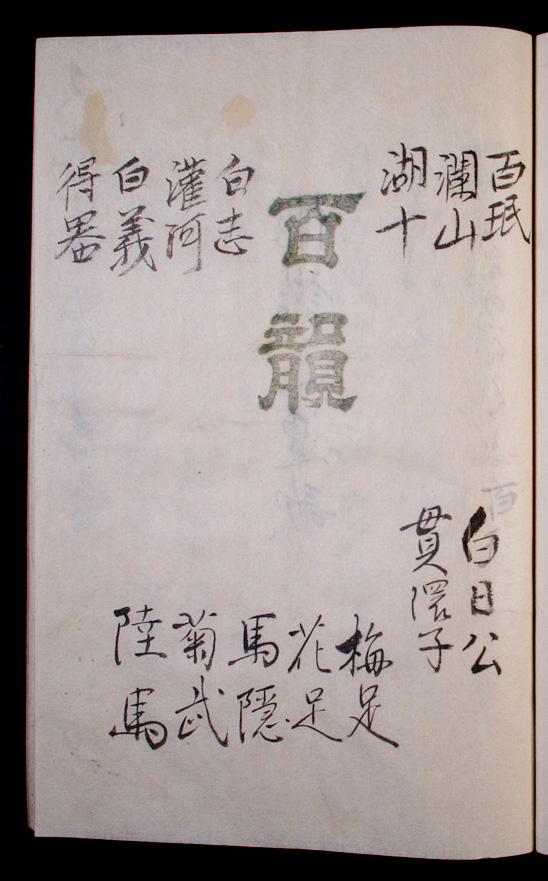 百珉
瀾山
湖十
百韻
白志
灌河
白義
得器
白日公
貫環子
梅足
花足
馬隠
菊武
陸馬